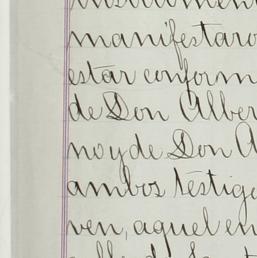 manifestaro
estar conform
de Don Alber
no y de Don A
ambos testigo
ven, aquel en